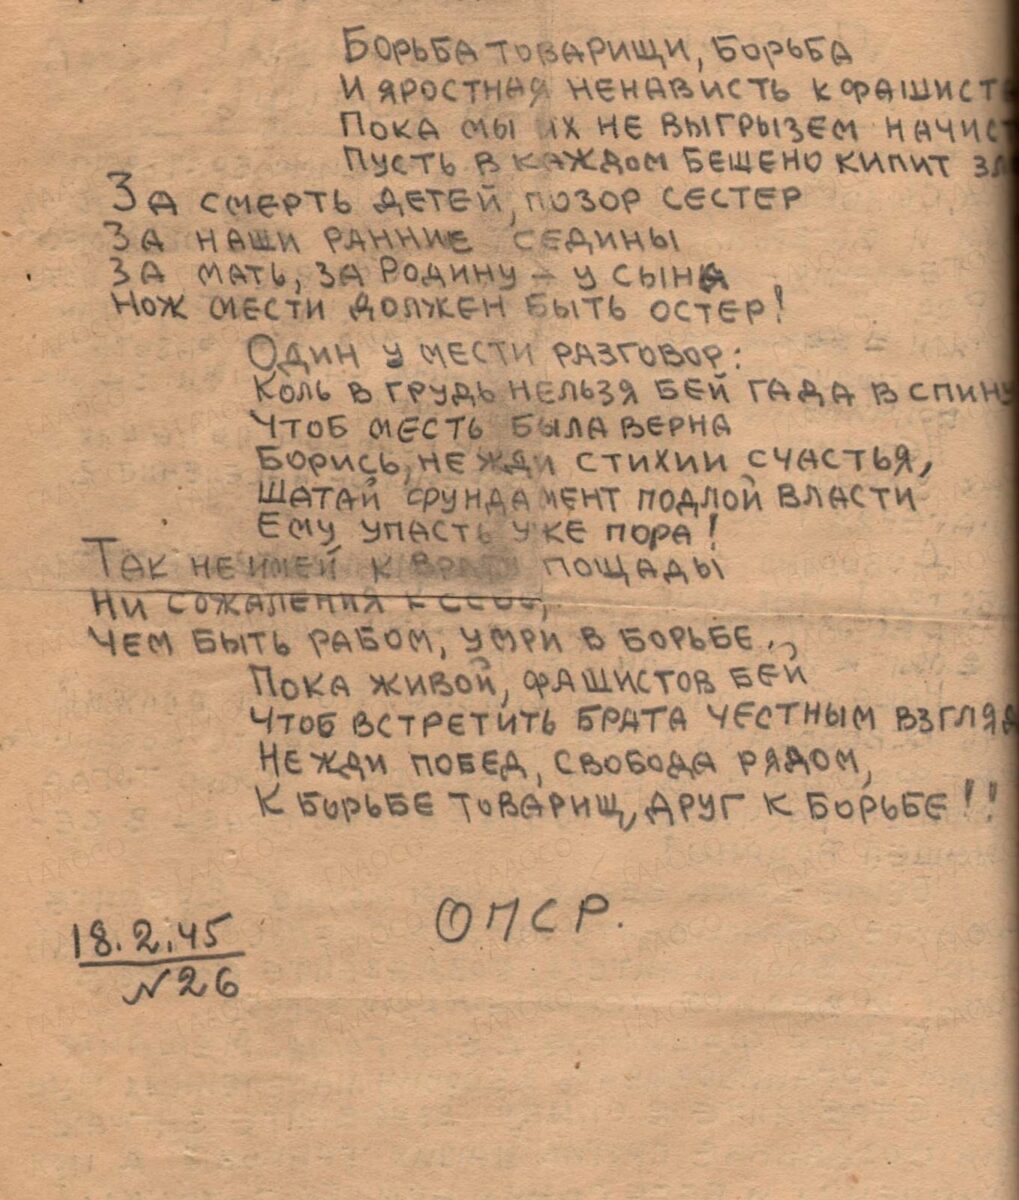 Борьба товарищи, борьба
И яростная ненависть к фашист
Пока мы их не выгрызем начист
Пусть в каждом бешено кипит зл
За смерть детей, позор сестер
За наши ранние седины
За мать, за Родину – у сына
Нож мести должен быть остер!
Один у мести разговор:
Коль в грудь нельзя бей гада в спину
Чтоб месть была верна
Борись, не жди стихии счастья,
Шатай фундамент подлой власти
Ему упасть уже пора!
Так не имей к врагу пощады
Ни сожаления к себе,
Чем быть рабом, умри в борьбе.,
Пока живой, фашистов бей
Чтоб встретить брата честным взгляд
Не жди побед, свобода рядом,
К борьбе товарищ, друг к борьбе!!
ОПСР.
18.2.45
N26